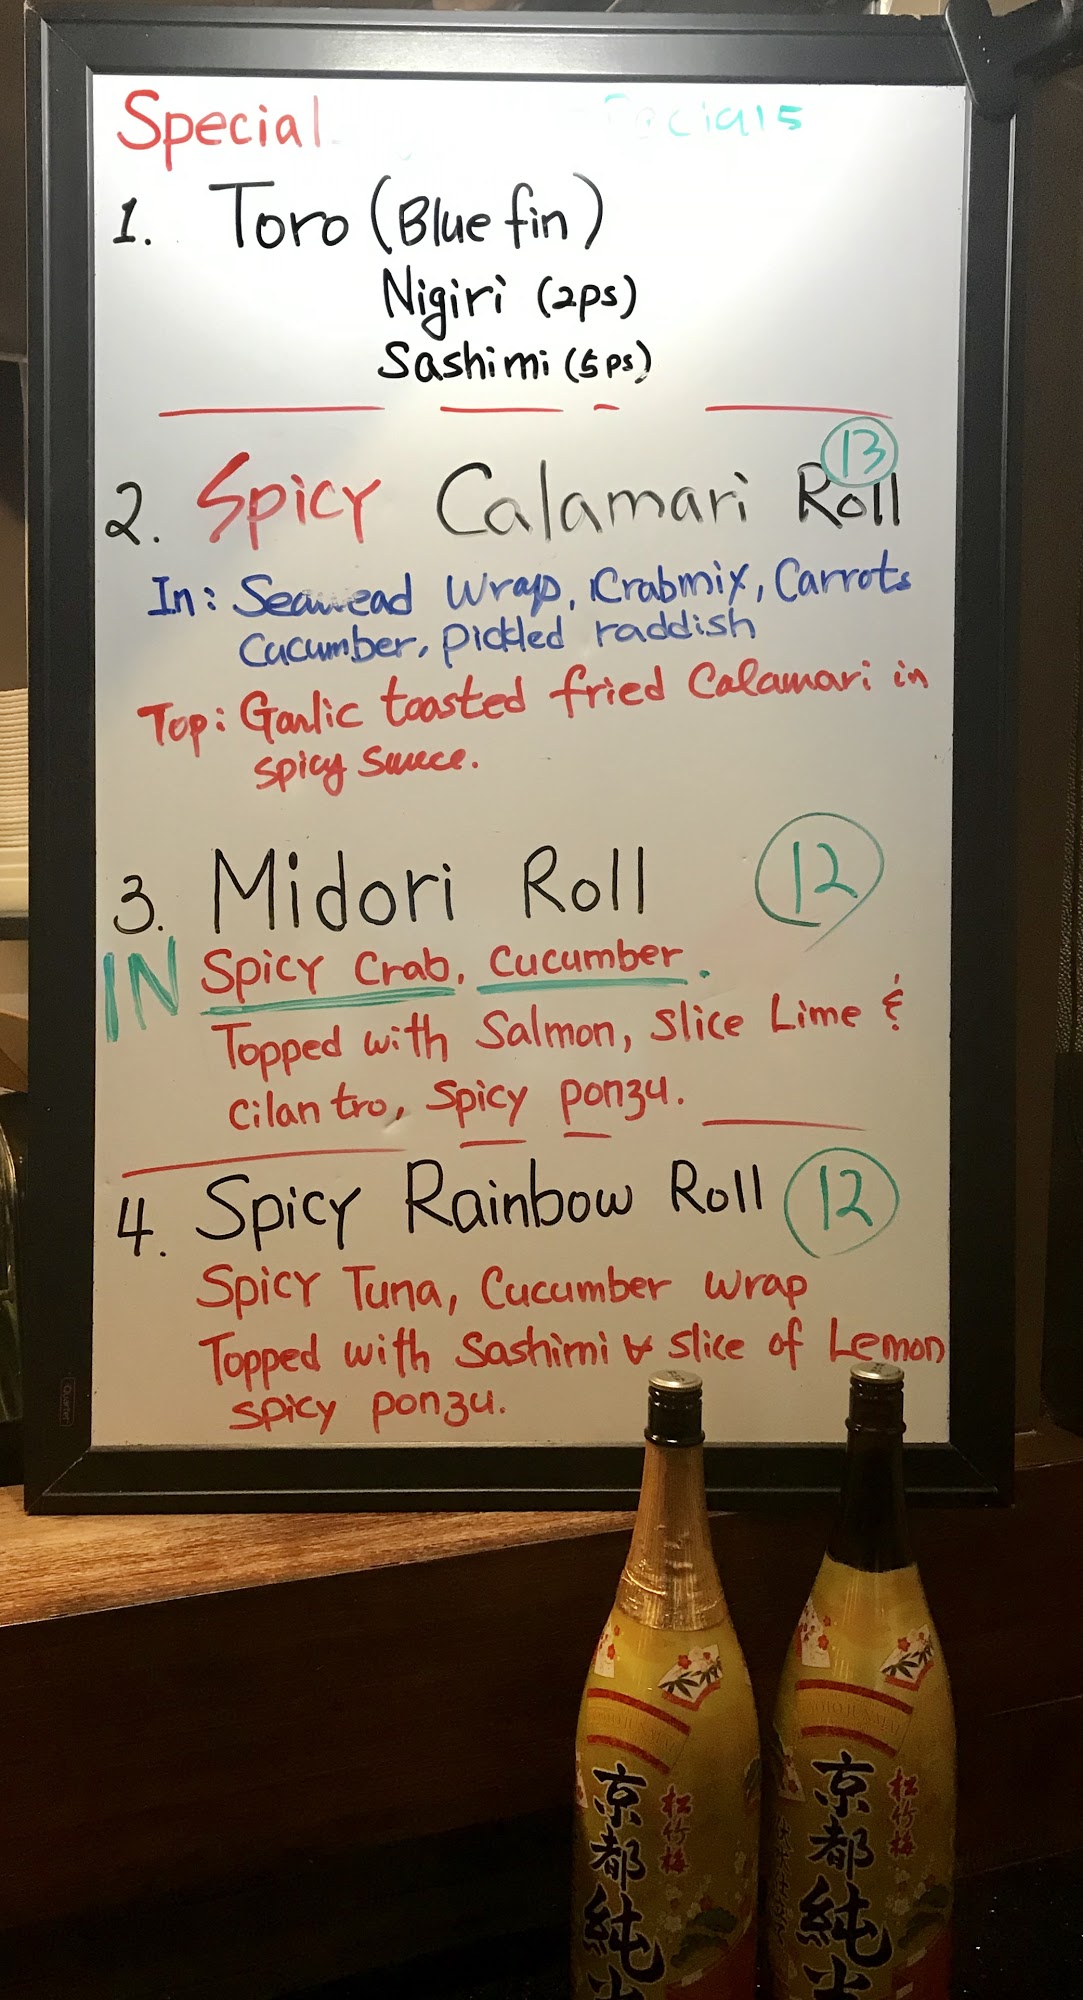 Special
1. Toro (Blue fin)
Nigiri (2ps)
Sashimi (5ps)
13
2. Spicy Calamari Roll
In: Seawead Wrap, Crabmix, Carrots
Cucumber, pickled raddish
Top: Garlic toasted fried Calamari in
spicy sauce.
3. Midori Roll 12
IN Spicy Crab, Cucumber.
Topped with Salmon, Slice Lime &
cilantro, spicy ponzu.
4. Spicy Rainbow Roll 12
Spicy Tuna, Cucumber wrap
Topped with Sashimi & slice of Lemon
spicy ponzu.
松竹梅
京都純米
松竹梅
京都純米